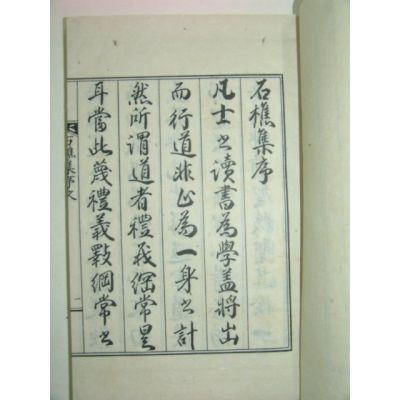 石樵集序
凡士之讀書為學盖將出
而行道非止為一身之計
然所謂道者禮義綱常是
耳當此蔑禮義斁綱常之
石樵集序文
一